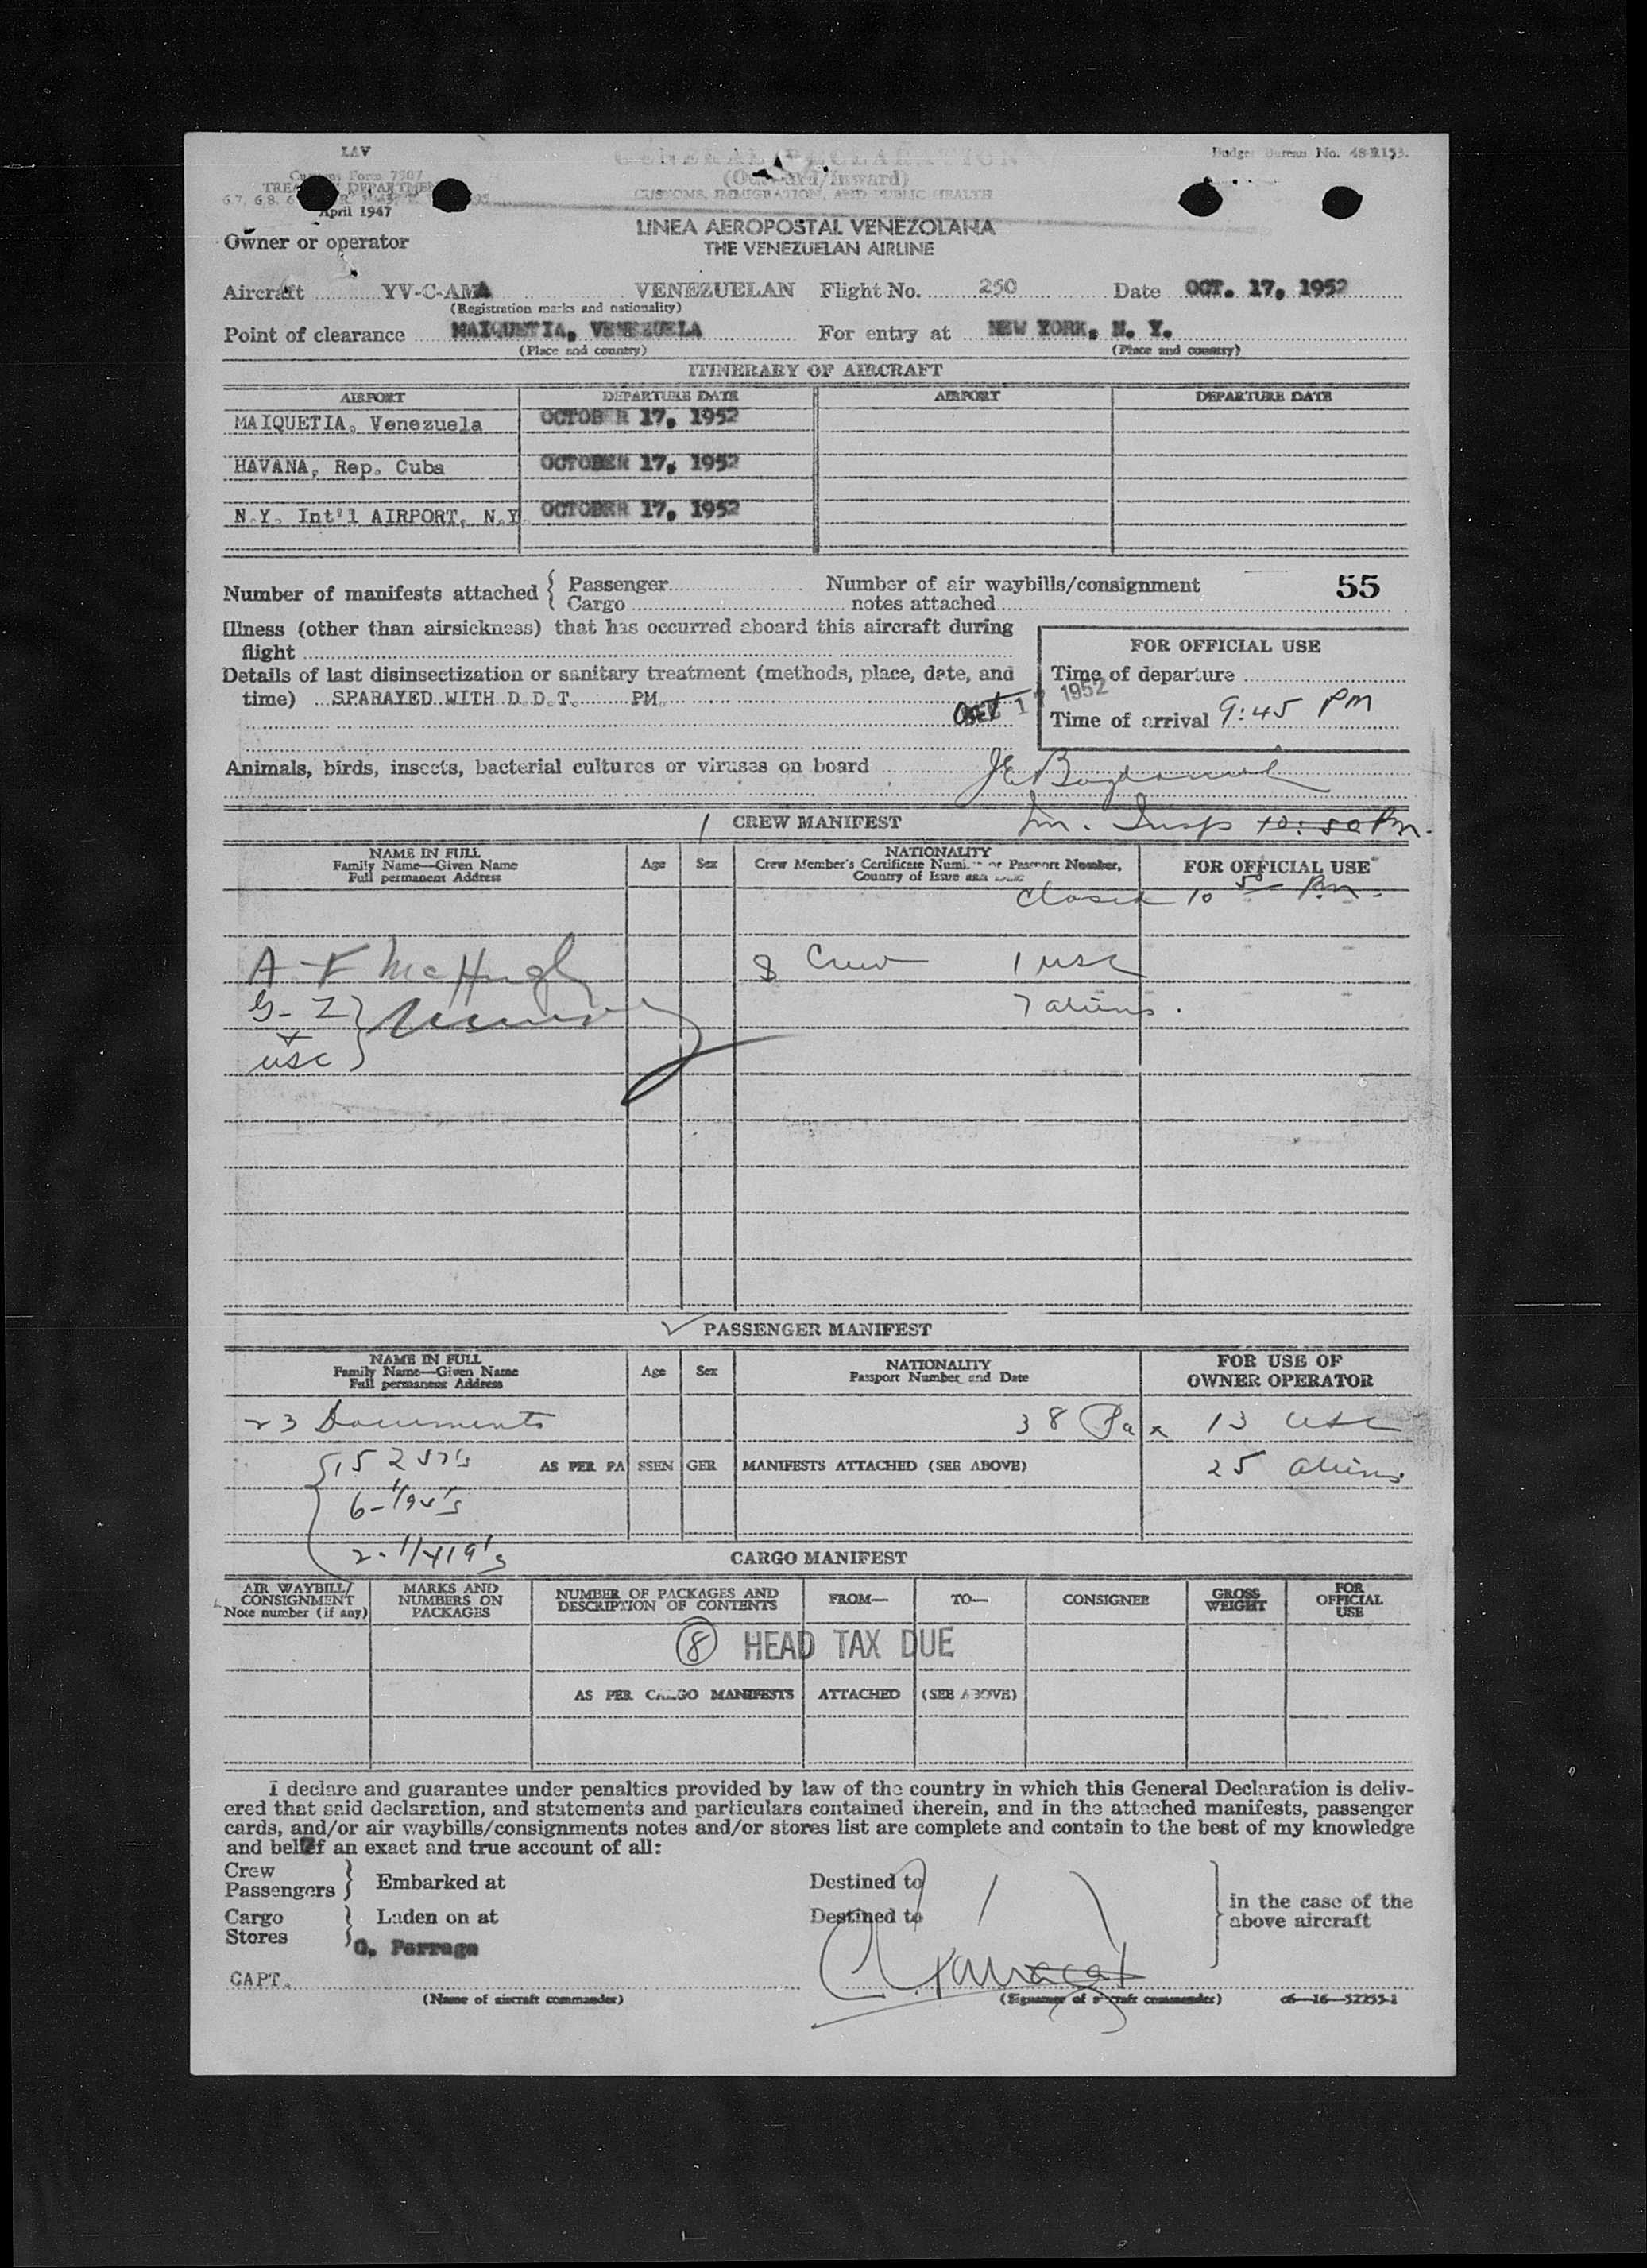 LAV
GENERAL DECLARATION
Budget Bureau No. 48-R153.
Customs Form 7507
(Outward/Inward)
TREASURY DEPARTMENT
CUSTOMS, IMMIGRATION, AND PUBLIC HEALTH
April 1947
LINEA AEROPOSTAL VENEZOLANA
THE VENEZUELAN AIRLINE
Owner or operator
Aircraft YV-C-AMA VENEZUELAN Flight No. 250 Date OCT. 17, 1952
(Registration marks and nationality)
Point of clearance MAIQUETIA, VENEZUELA For entry at NEW YORK, N. Y.
(Place and country) (Place and country)
ITINERARY OF AIRCRAFT
AIRPORT DEPARTURE DATE AIRPORT DEPARTURE DATE
MAIQUETIA, Venezuela OCTOBER 17, 1952
HAVANA, Rep. Cuba OCTOBER 17, 1952
N.Y. Int'l AIRPORT, N.Y. OCTOBER 17, 1952
Number of manifests attached { Passenger Number of air waybills/consignment 55
Cargo notes attached
Illness (other than airsickness) that has occurred aboard this aircraft during
flight
FOR OFFICIAL USE
Details of last disinsectization or sanitary treatment (methods, place, date, and
Time of departure
time) SPARAYED WITH D.D.T. PM.
OCT 17 1952
Time of arrival 9:45 PM
Animals, birds, insects, bacterial cultures or viruses on board
CREW MANIFEST
Im. Insp 10:50 Pm.
NAME IN FULL Age Sex NATIONALITY FOR OFFICIAL USE
Family Name—Given Name Crew Member's Certificate Number or Passport Number,
Full permanent Address Country of Issue and Date
Closed 10 50 Pm.
A F McHugh 8 Crew 1 USC
G-Z 7 aliens.
&
USC
PASSENGER MANIFEST
NAME IN FULL Age Sex NATIONALITY FOR USE OF
Family Name—Given Name Passport Number and Date OWNER OPERATOR
Full permanent Address
23 Documents 38 Pax 13 USC
15 257's AS PER PASSENGER MANIFESTS ATTACHED (SEE ABOVE) 25 aliens
CARGO MANIFEST
AIR WAYBILL/ MARKS AND NUMBER OF PACKAGES AND FROM— TO— CONSIGNEE GROSS FOR
CONSIGNMENT NUMBERS ON DESCRIPTION OF CONTENTS WEIGHT OFFICIAL
Note number (if any) PACKAGES USE
8 HEAD TAX DUE
AS PER CARGO MANIFESTS ATTACHED (SEE ABOVE)
I declare and guarantee under penalties provided by law of the country in which this General Declaration is deliv-
ered that said declaration, and statements and particulars contained therein, and in the attached manifests, passenger
cards, and/or air waybills/consignments notes and/or stores list are complete and contain to the best of my knowledge
and belief an exact and true account of all:
Crew
Passengers } Embarked at Destined to
in the case of the
above aircraft
Cargo
Stores } Laden on at Destined to
G. Parraga
CAPT.
(Name of aircraft commander) (Signature of aircraft commander) c6—16—52255-1